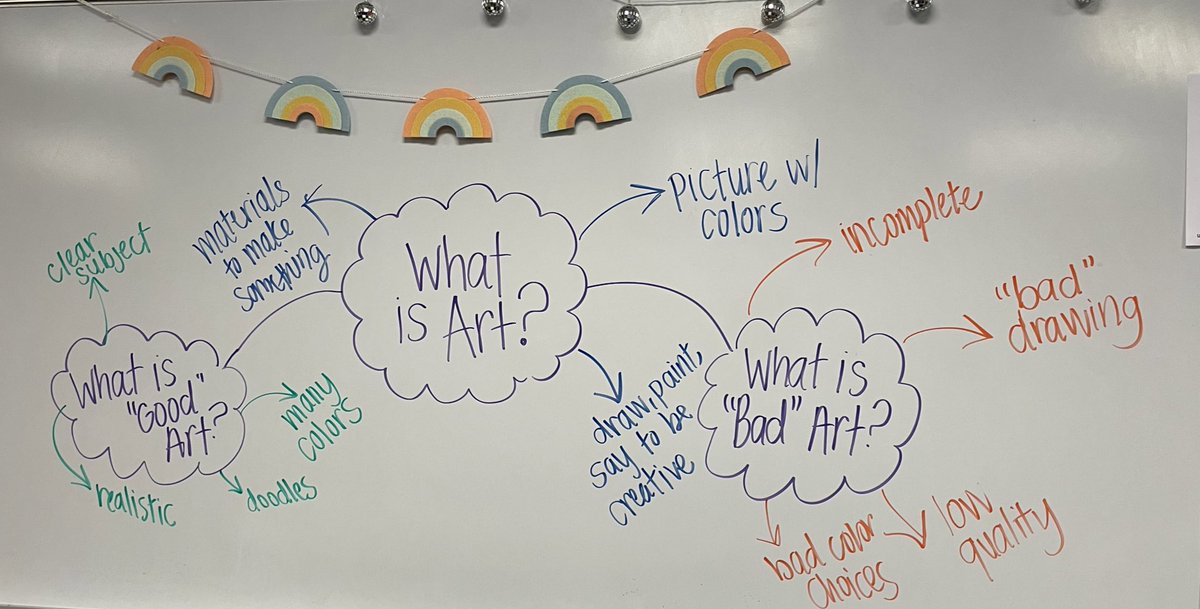 What
is Art?
materials
to make
something
Picture w/
colors
draw, paint,
say to be
creative
What is
"Good"
Art?
clear
subject
many
colors
doodles
realistic
What is
"Bad" Art?
incomplete
"bad"
drawing
low
quality
bad color
choices